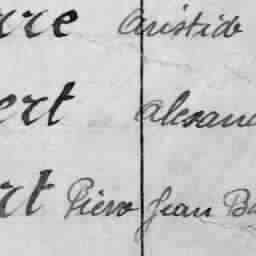 rre Aristide
ert Alexand
rt Pierre Jean Ba